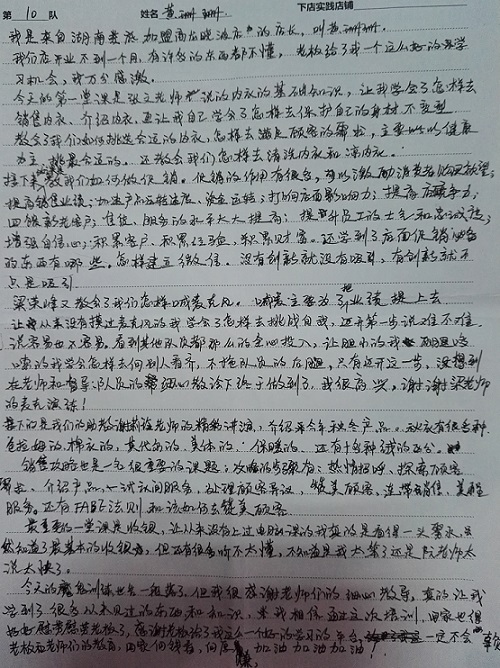 第 10 队 姓名 黄珊珊. 下店实践店铺
我是来自湖南娄底加盟商 店的店长，叫黄珊珊.
我们店开业不到一个月，有许多的东西都不懂，老板给了我一个这么好的学
习机会，我万分感激。
今天的第一堂课是张立老师 说的内衣的基础知识，让我学会了怎样去
销售内衣、介绍内衣，更让我自己学会了怎样去保护自己的身材不变型
教会了我们如何挑选合适的内衣，怎样去满足顾客的需求，主要以健康
为主，挑最合适的。还教会我们怎样去清洗内衣和凉内衣。
接下来教我们如何做促销。促销的作用有很多，可以激励消费者购买欲望；
提高销售业绩；加速产品运转速度、资金运转；打响店面影响力；提高店竞争力；
回馈新老客户；售后、服务的水平大大提高；提升员工的士气和
增强自信心；积累客户、积累经验，积累财富。还学到了店面促销准备
的东西有哪些。怎样建立微信。没有创新就没有吸引，有创新就有
点是吸引
梁 峰又教会了我们怎样喊麦克风。喊麦主要为了把业绩提上去
让我从来没有摸过麦克风的我学会了怎样去挑战自我，迈开第一步说难不难
说容易也不容易，看到其他队员都那么的全心投入，让胆小的我
的我学会怎样去向别人看齐，不拖队员的后腿，只有迈开这一步，没想到
在老师和 队员的细心教诲下终于做到了，我很高兴，谢谢梁老师
的麦克演练！
接下的是我们的助教谢莉莲老师的精彩讲演，介绍了今年秋冬产品。秋衣有很多种
包括 的、棉衣的，莫代尔的、美体的、保暖的、还有十多种 的区分。
销售攻略也是一个很重要的课题，攻略的步骤有：热情招呼、探索顾客
需求、介绍产品、试衣间服务、处理顾客异议、赞美顾客、连带销售、美程
服务。还有FABE法则和该如何去赞美顾客
最重要的一堂课是收银，让从来没有上过电脑课的我真的是看得一头雾水，虽
然知道了最基本的收银 ，但还有很多听不太懂，不知道是我太笨了还是阮老师太
说太快了。
今天的魔鬼训练也告一段落了，但我很感谢老师们的细心教导，真的让我
学到了很多以来没见过的东西和知识，来我相信通过这次培训，回家也很
好好慰劳慰劳老板了，感谢老板给了我这么一个好的学习的平台，一定不会辜
老板和老师们的教育，回家 钱着，向 加油加油加油！